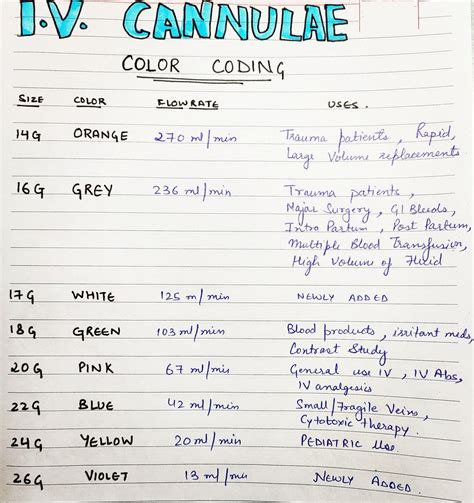 I.V. CANNULAE
COLOR CODING
SIZE COLOR FLOWRATE USES.
14G ORANGE 270 ml/min Trauma patients, Rapid,
Large Volume replacements.
16G GREY 236 ml/min Trauma patients,
Major Surgery, GI Bleeds,
Intra Partum, Post Partum,
Multiple Blood Transfusion,
High Volume of Fluid
17G WHITE 125 m/min NEWLY ADDED
18G GREEN 103 ml/min Blood products, irritant meds,
Contrast Study
20G PINK 67 ml/min General use IV, IV Abs,
IV analgesics
22G BLUE 42 ml/min Small/Fragile Veins,
Cytotoxic therapy.
24G YELLOW 20 ml/min PEDIATRIC Use.
26G VIOLET 13 ml/min NEWLY ADDED.